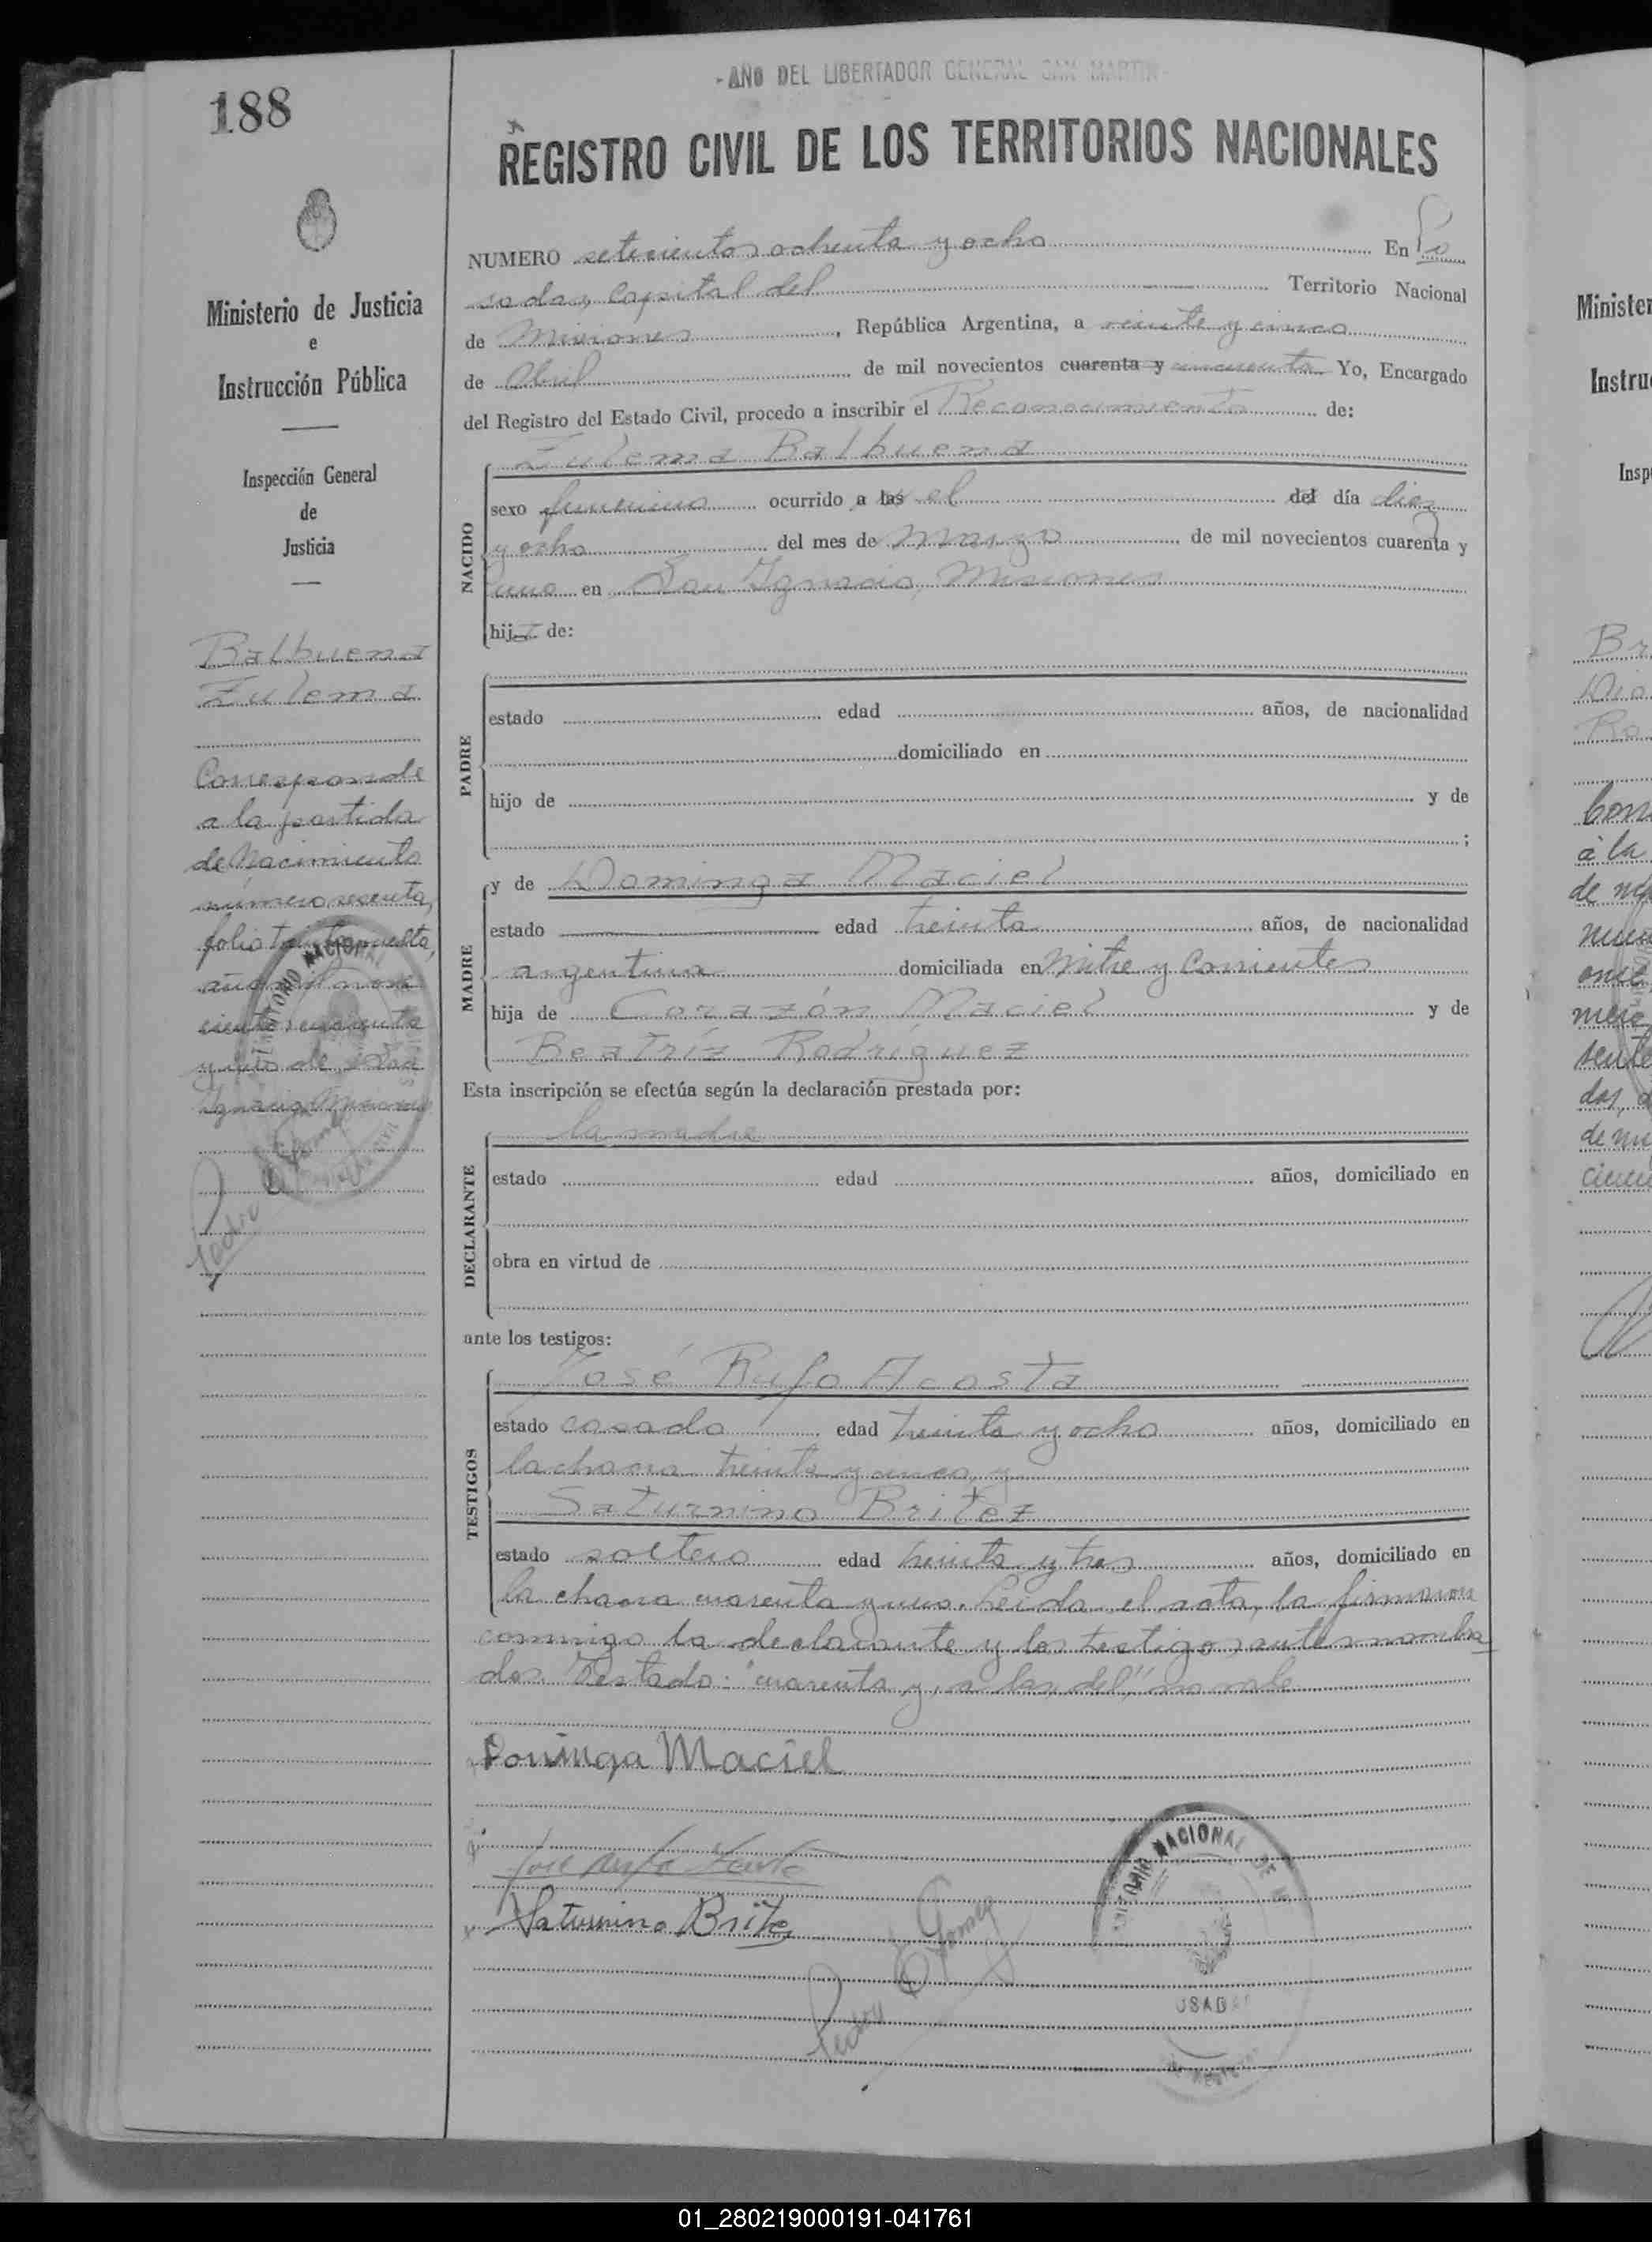 188
- AÑO DEL LIBERTADOR GENERAL SAN MARTIN -
REGISTRO CIVIL DE LOS TERRITORIOS NACIONALES
Ministerio de Justicia
e
Instrucción Pública
Inspección General
de
Justicia
Balbuena
Zulema
Corresponde
a la partida
de Nacimiento
número sesenta,
folio vuelta,
año mil nove
cientos cuarenta
y uno de San
Ignacio Misiones
Pedro Gomez
NUMERO setecientos ochenta y ocho En Po
sadas, Capital del Territorio Nacional
de Misiones, República Argentina, a veinte y cinco
de Abril de mil novecientos cuarenta y cincuenta Yo, Encargado
del Registro del Estado Civil, procedo a inscribir el Reconocimiento de:
NACIDO
Zulema Balbuena
sexo femenino ocurrido a las el del día diez
y ocho del mes de Marzo de mil novecientos cuarenta y
uno en San Ignacio, Misiones
hija de:
PADRE
estado edad años, de nacionalidad
domiciliado en
hijo de y de
;
MADRE
y de Dominga Maciel
estado edad treinta años, de nacionalidad
argentina domiciliada en Mitre y Corrientes
hija de Corazón Maciel y de
Beatríz Rodríguez
Esta inscripción se efectúa según la declaración prestada por:
DECLARANTE
la madre
estado edad años, domiciliado en
obra en virtud de
ante los testigos:
TESTIGOS
José Rufo Acosta
estado casado edad treinta y ocho años, domiciliado en
la chacra treinta y cinco, y
Saturnino Britez
estado soltero edad treinta y tres años, domiciliado en
la chacra cuarenta y uno. Leida el acta, la firmaron
conmigo la declarante y los testigos antes nombra
dos. Testado: "cuarenta y, a las, del", no vale
Dominga Maciel
Saturnino Britez
Pedro Gomez
TERRITORIO NACIONAL DE M
POSADAS
01_280219000191-041761